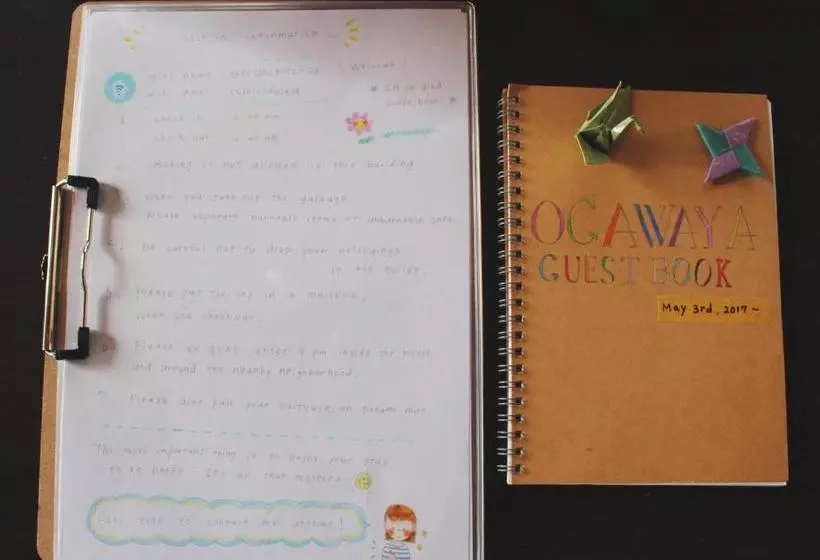 information
Welcome!
wifi name
check in
check out
smoking is not allowed in this building
when you take out the garbage
Please separate burnable items or unburnable ones
Be careful not to drop your belongings
in the toilet
Please put the key in a mailbox,
when you checkout.
Please be quiet after 9 pm inside the house
and around the nearby neighborhood.
7. Please don't pull your suitcase on tatami mat
The most important thing is to enjoy your stay
to be happy. It's all that matters
Feel free to contact me anytime!
OGAWAYA
GUEST BOOK
May 3rd, 2017~